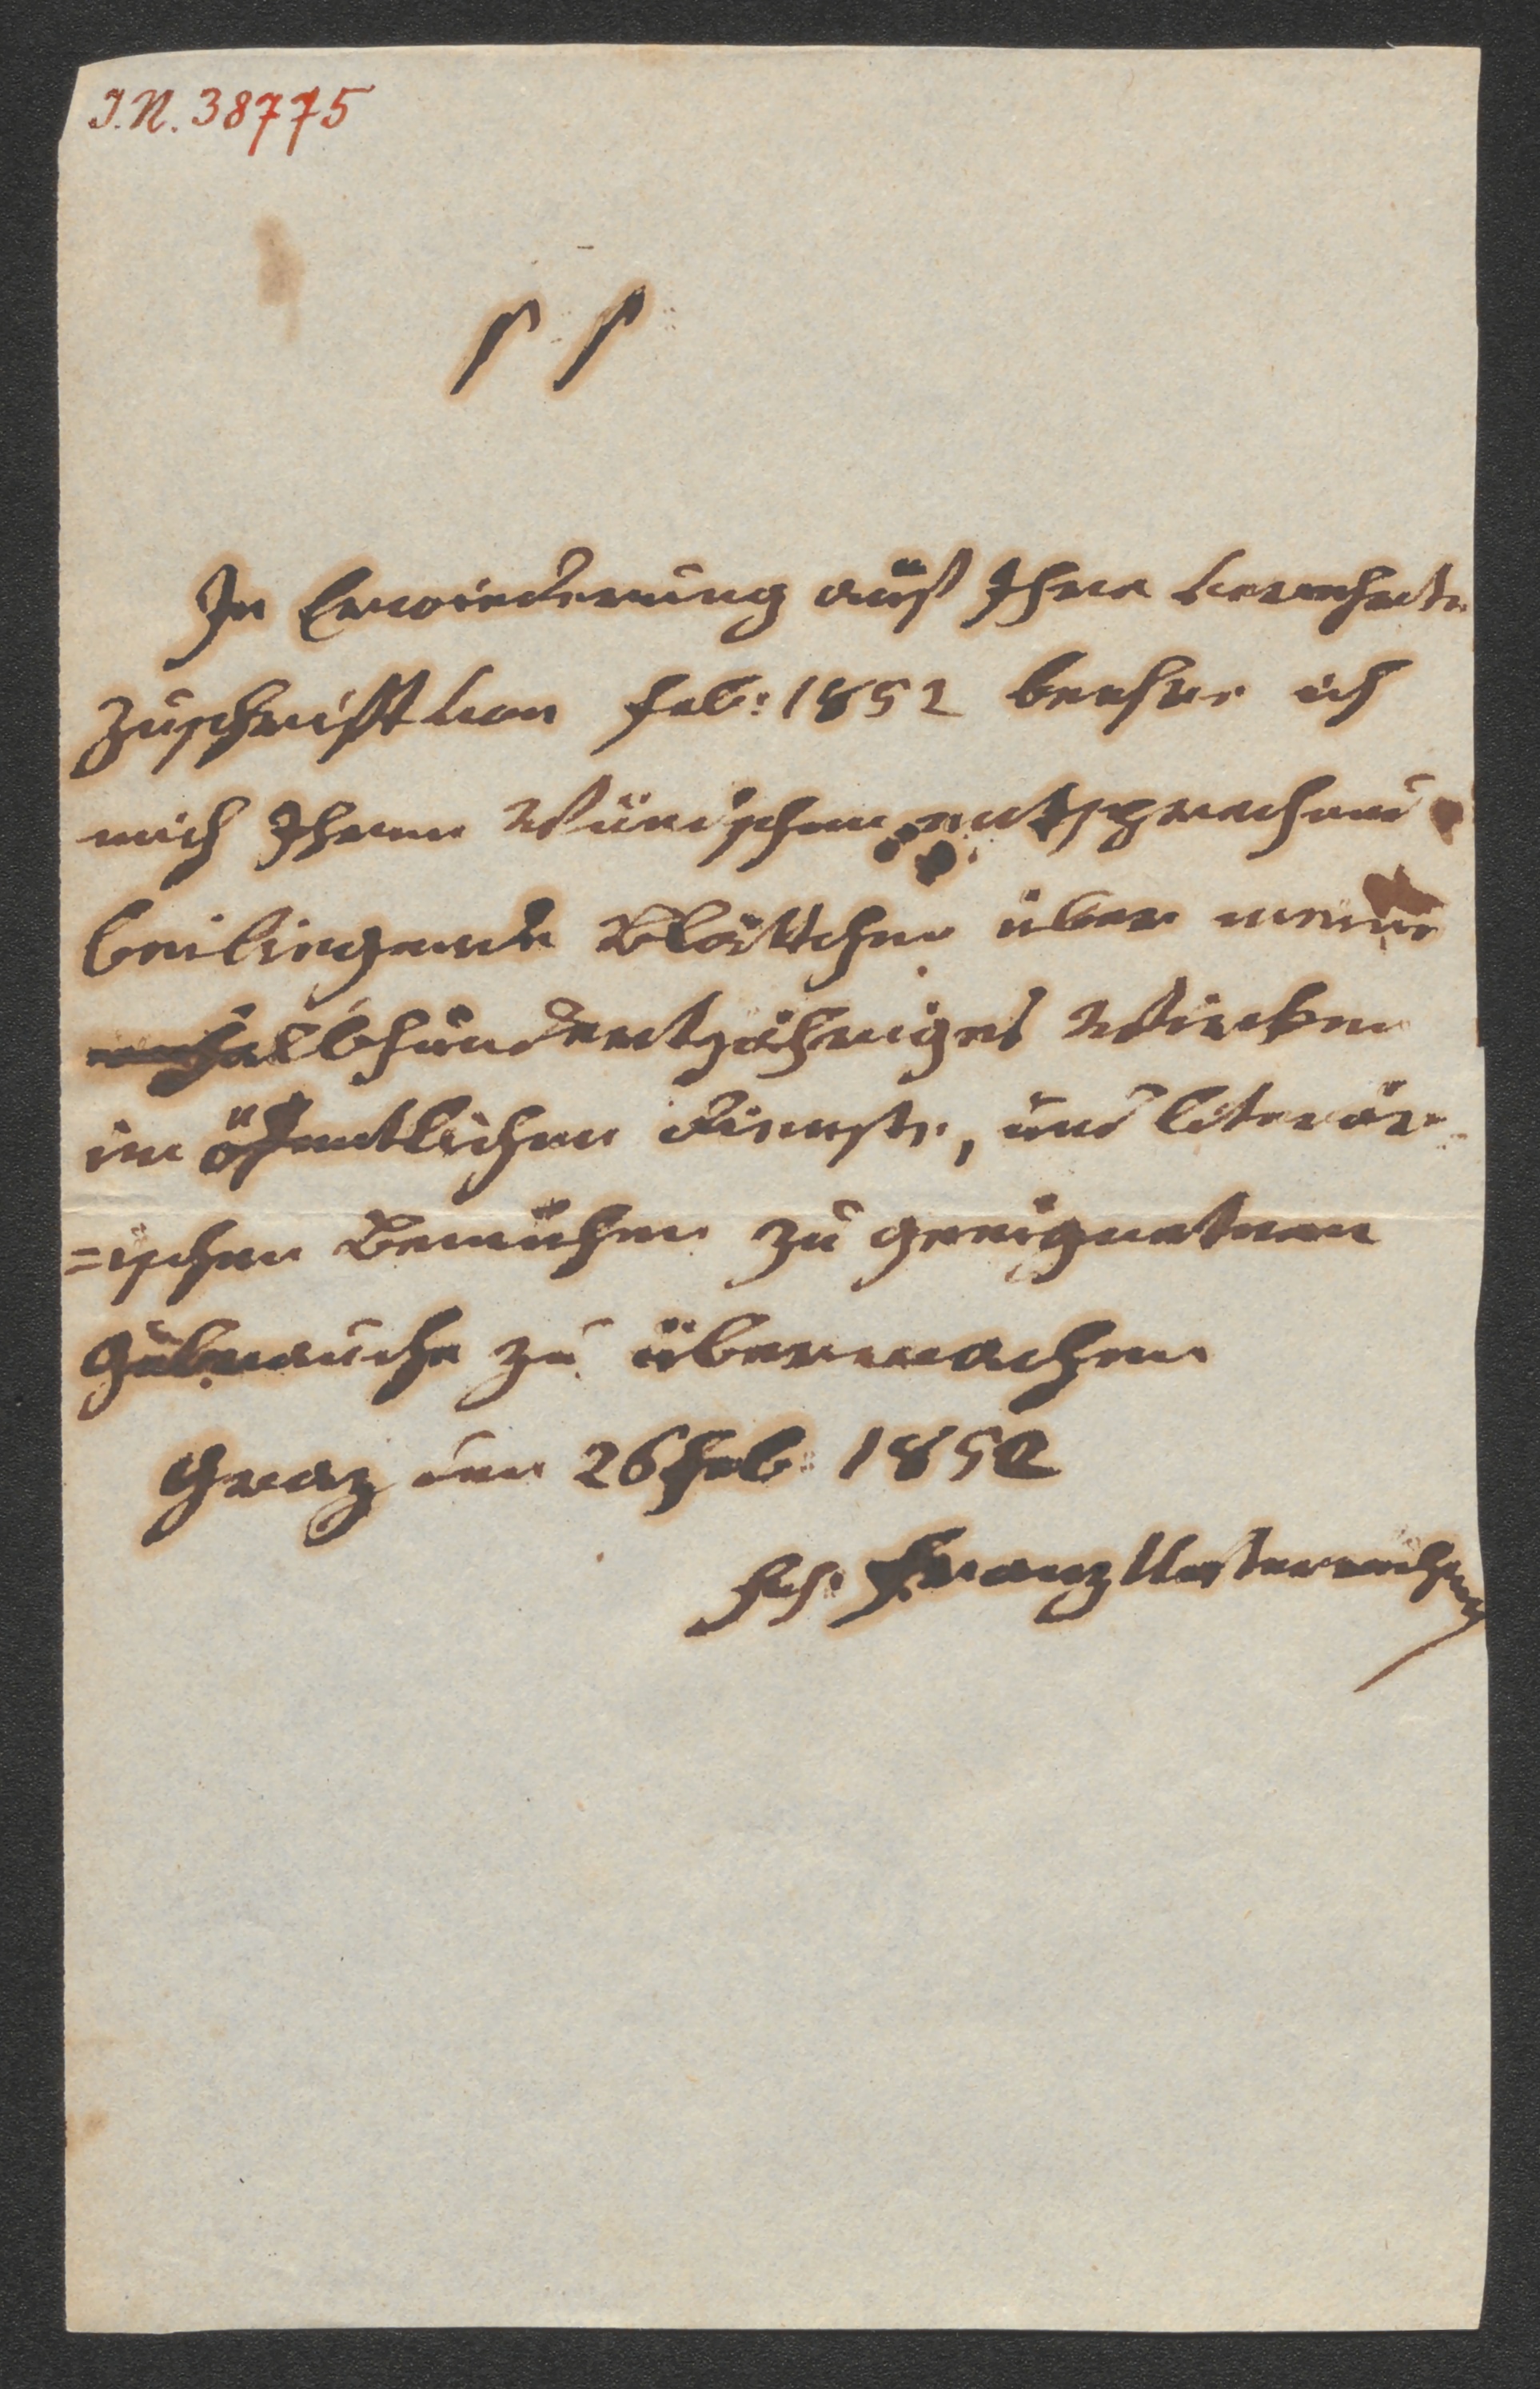 I.N. 38775
P P
In Erwiederung auf Ihre verehrte
Zuschrift von Feb: 1852 beehre ich
mich Ihrem Wünschen entsprechend
beiliegende Blättchen über mein
halbhundertjähriges Wirken
im öffentlichen Dienste, und literär-
=ischen Bemühen zu geeigneten
Gebrauche zu übermachen
Graz den 26 Feb: 1852
Franz